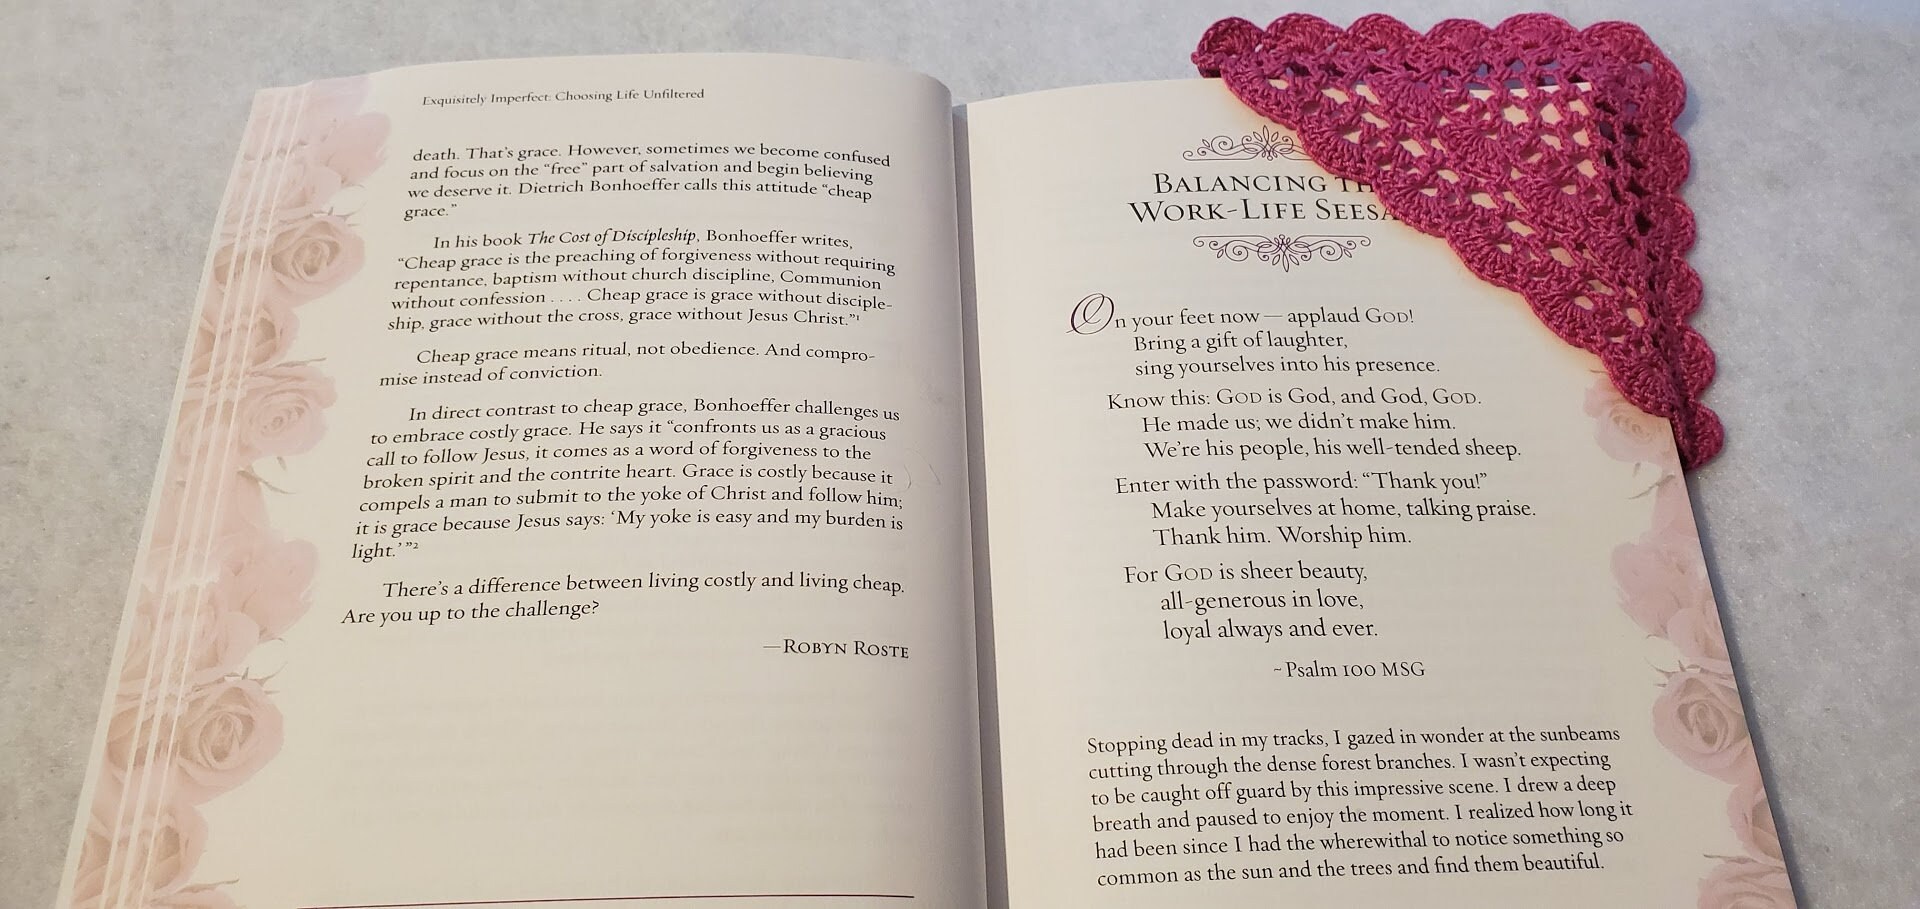 Exquisitely Imperfect: Choosing Life Unfiltered
death. That's grace. However, sometimes we become confused
and focus on the “free” part of salvation and begin believing
we deserve it. Dietrich Bonhoeffer calls this attitude “cheap
grace.”
In his book The Cost of Discipleship, Bonhoeffer writes,
“Cheap grace is the preaching of forgiveness without requiring
repentance, baptism without church discipline, Communion
without confession . . . . Cheap grace is grace without disciple-
ship, grace without the cross, grace without Jesus Christ.”¹
Cheap grace means ritual, not obedience. And compro-
mise instead of conviction.
In direct contrast to cheap grace, Bonhoeffer challenges us
to embrace costly grace. He says it “confronts us as a gracious
call to follow Jesus, it comes as a word of forgiveness to the
broken spirit and the contrite heart. Grace is costly because it
compels a man to submit to the yoke of Christ and follow him;
it is grace because Jesus says: ‘My yoke is easy and my burden is
light.’”²
There's a difference between living costly and living cheap.
Are you up to the challenge?
—Robyn Roste
Balancing
Work-Life
On your feet now — applaud GOD!
Bring a gift of laughter,
sing yourselves into his presence.
Know this: GOD is God, and God, GOD.
He made us; we didn't make him.
We're his people, his well-tended sheep.
Enter with the password: “Thank you!”
Make yourselves at home, talking praise.
Thank him. Worship him.
For GOD is sheer beauty,
all-generous in love,
loyal always and ever.
~Psalm 100 MSG
Stopping dead in my tracks, I gazed in wonder at the sunbeams
cutting through the dense forest branches. I wasn't expecting
to be caught off guard by this impressive scene. I drew a deep
breath and paused to enjoy the moment. I realized how long it
had been since I had the wherewithal to notice something so
common as the sun and the trees and find them beautiful.